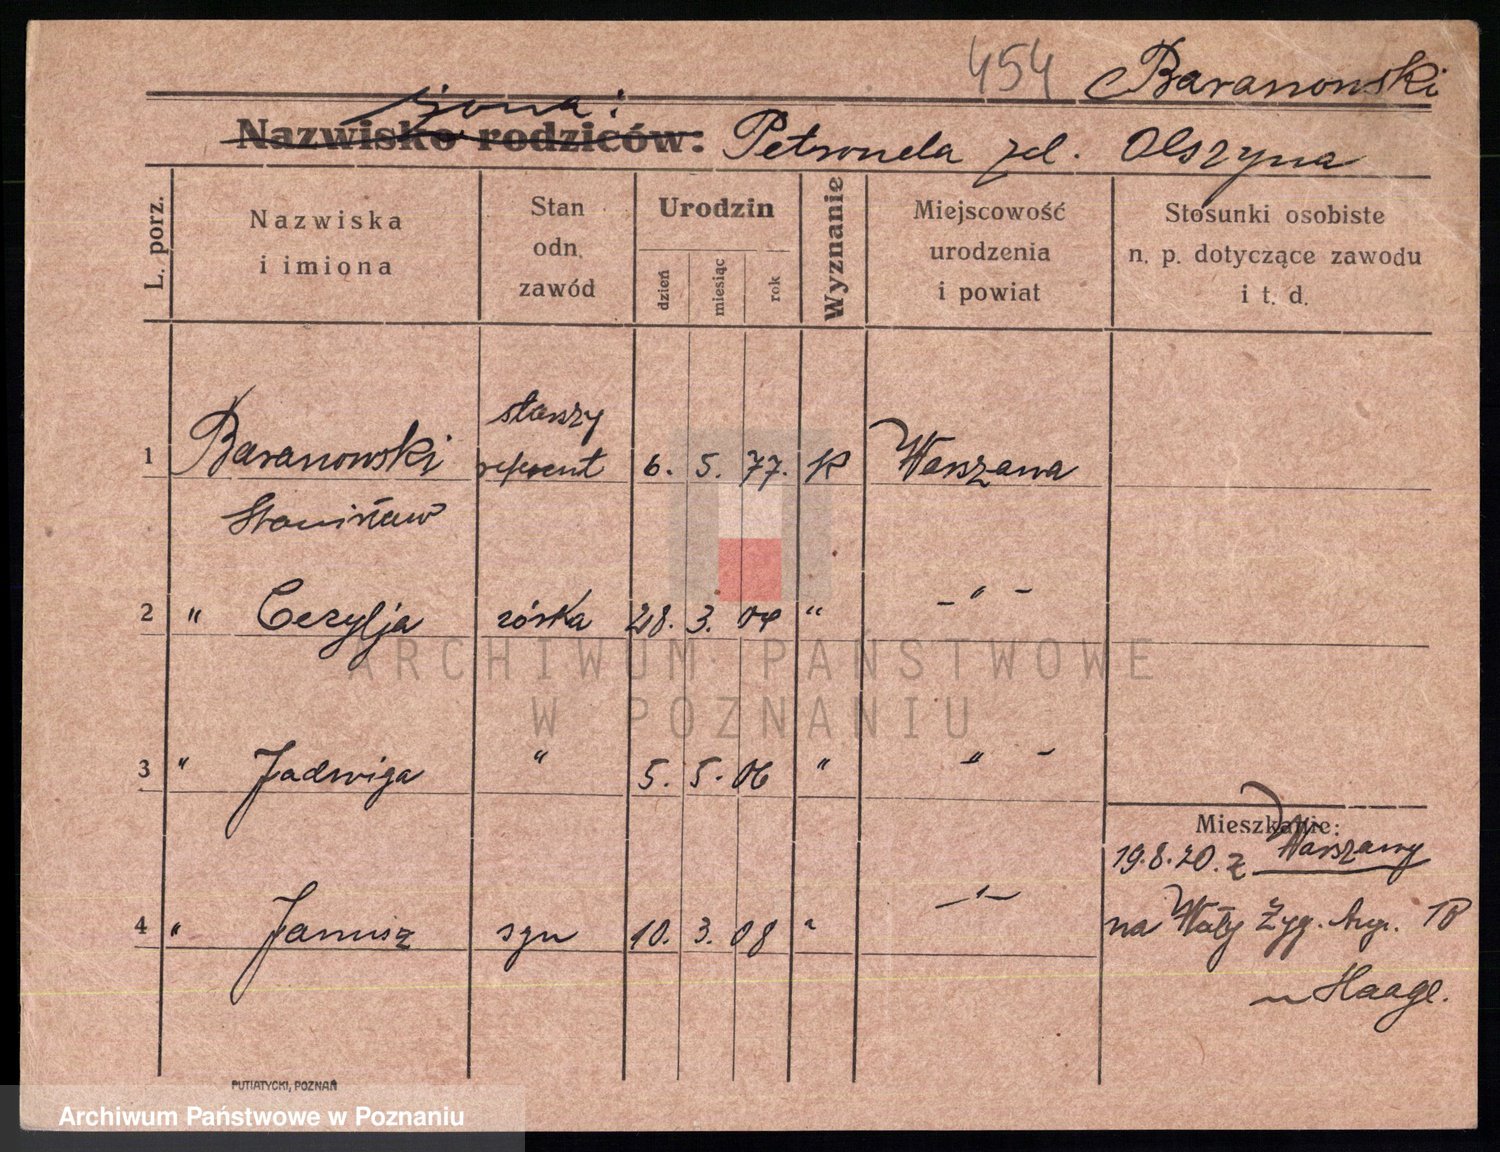 454 Baranowski
żona:
Nazwisko rodziców: Petronela zd. Olszyna
L. porz.
Nazwiska
i imiona
Stan
odn.
zawód
Urodzin
dzień
miesiąc
rok
Wyznanie
Miejscowość
urodzenia
i powiat
Stosunki osobiste
n. p. dotyczące zawodu
i t. d.
starszy
1 Baranowski referent 6. 5. 77. K Warszawa
Stanisław
2 " Cezylja córka 28. 3. 04 " - " -
3 " Jadwiga " 5. 5. 06 " " -
4 " Janusz syn 10. 3. 08 " - " -
Mieszkanie:
19.8.20. z Warszawy
na Wały Zyg. Aug.
u Haage.
PUTIATYCKI, POZNAŃ
ARCHIWUM PAŃSTWOWE
W POZNANIU
Archiwum Państwowe w Poznaniu